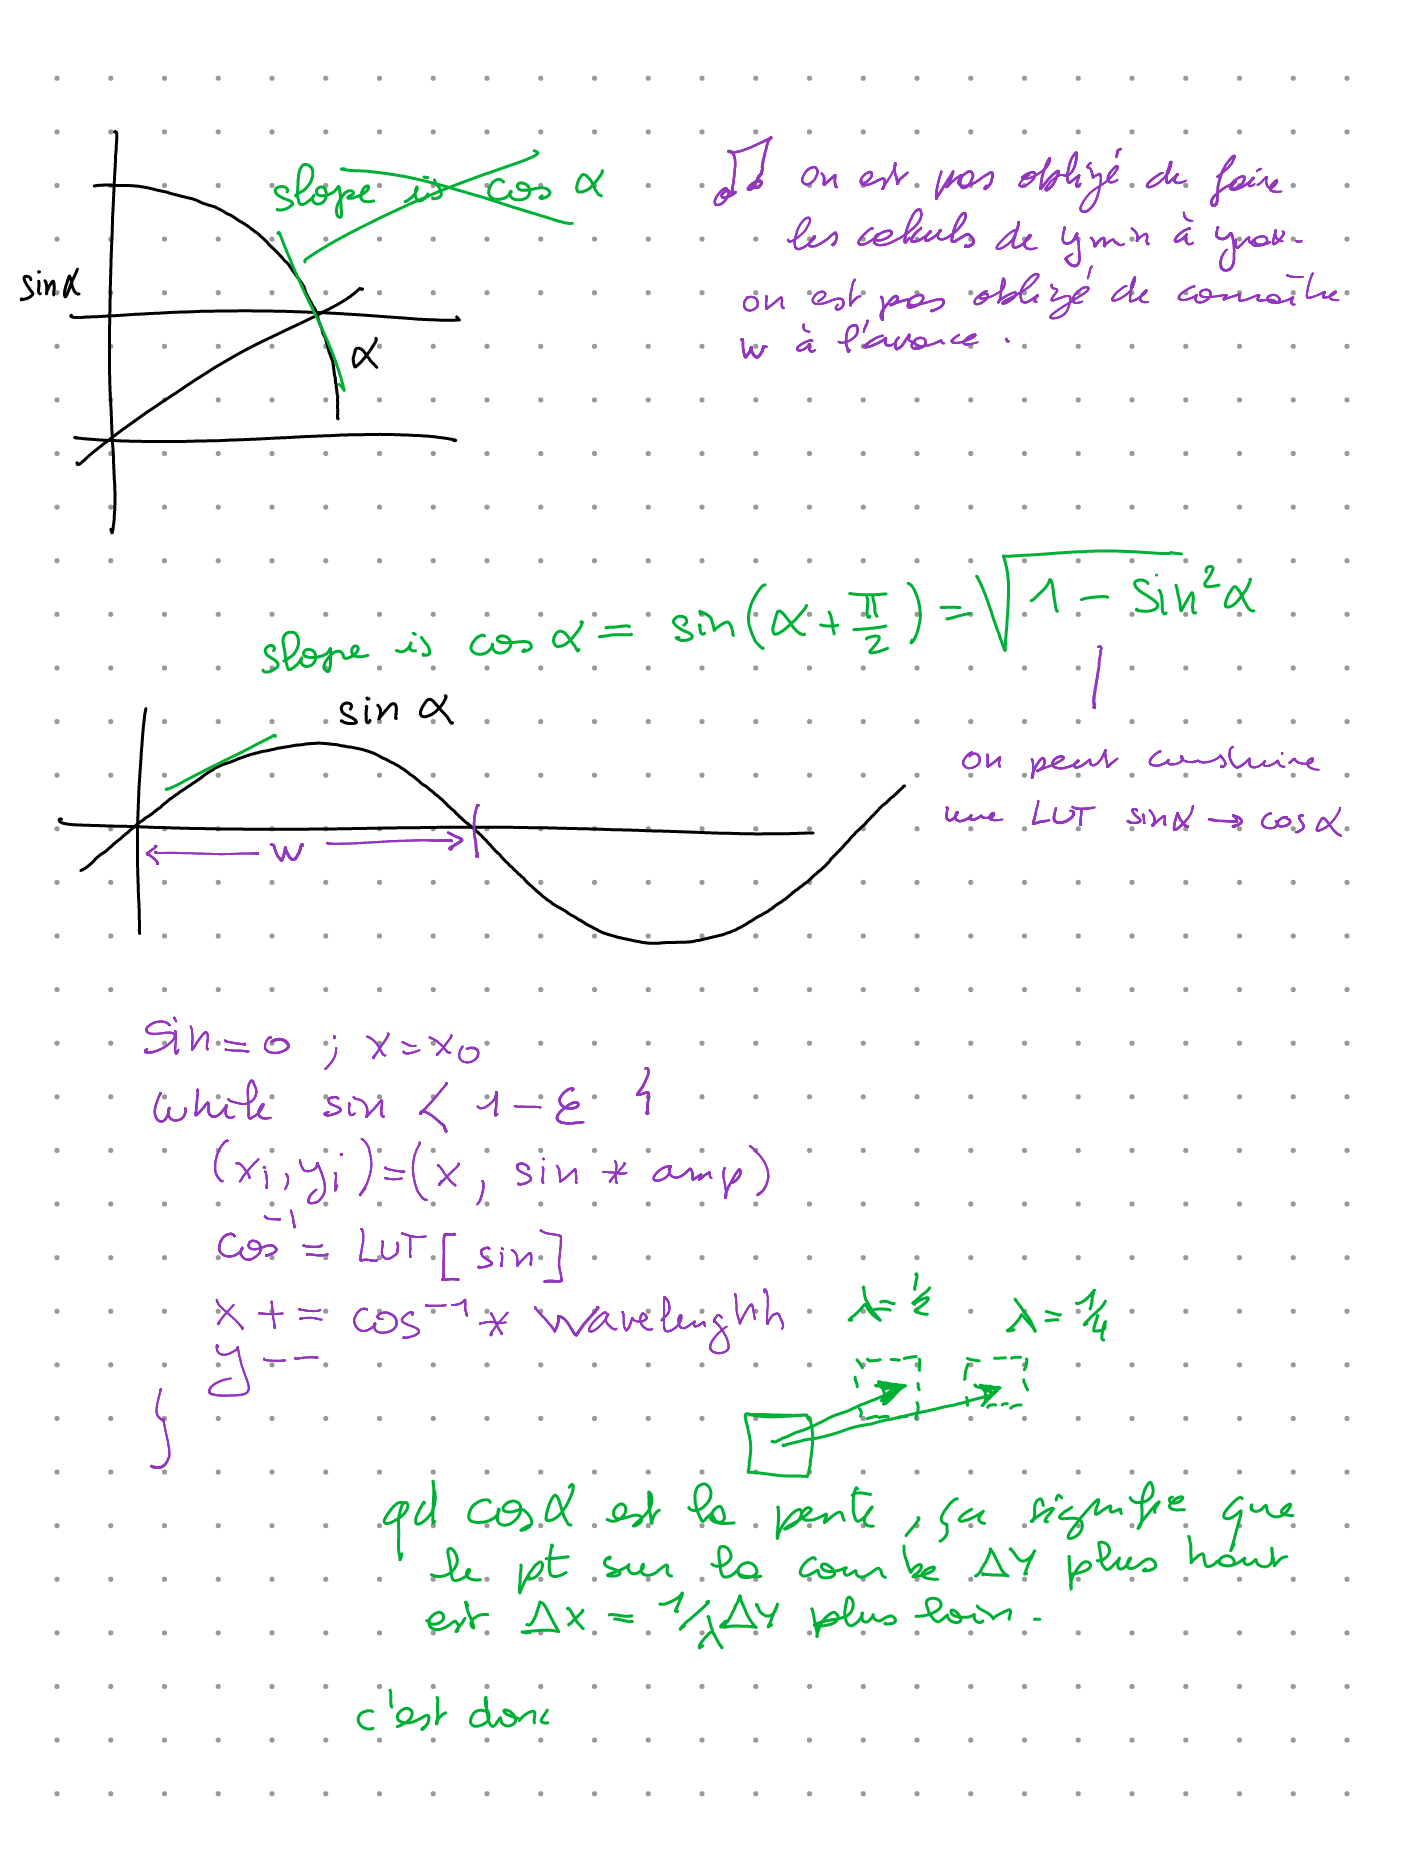 slope is cos α
sin α
α
on est pas obligé de faire
les calculs de ymin à ymax.
on est pas obligé de connaître
w à l'avance.
slope is cos α = sin(α + π/2) = √(1 - sin²α)
sin α
w
on peut construire
une LUT sin α → cos α
sin = 0 ; x = x₀
while sin < 1 - ε {
(xi, yi) = (x, sin * amp)
cos⁻¹ = LUT[sin]
x += cos⁻¹ * wavelenghh
y--
}
λ = 1/2
λ = 1/4
qd cos α est la pente, ça signifie que
le pt sur la courbe ΔY plus haut
est Δx = 1/λ ΔY plus loin.
c'est donc